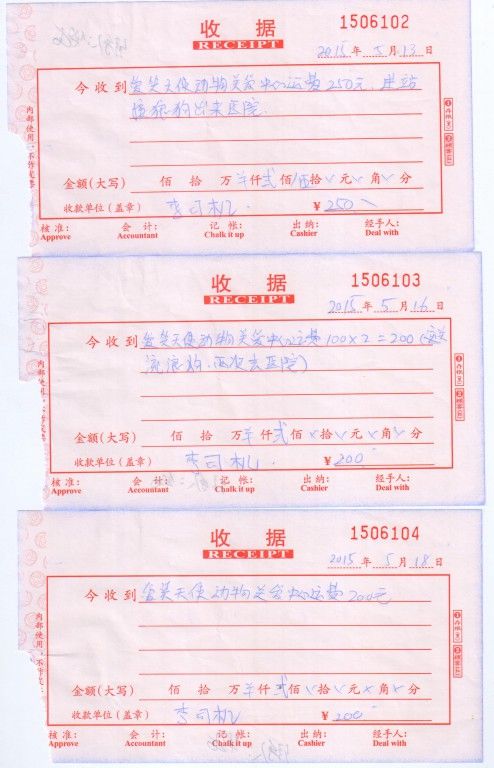 收据
RECEIPT
1506102
2015年5月13日
今收到 宠爱天使动物关爱中心运费250元
院.
金额(大写) 佰 拾 万 仟贰佰伍拾 元 角 分
收款单位(盖章) 李司机.
¥ 250
核准: 会计: 记帐: 出纳: 经手人:
Approve Accountant Chalk it up Cashier Deal with
内部使用·不作发票
收据
RECEIPT
1506103
2015年5月16日
今收到 宠爱天使动物关爱中心运费100×2=200(
流浪狗.两次去医院)
金额(大写) 佰 拾 万 仟贰佰 拾 元 角 分
收款单位(盖章) 李司机.
¥ 200
核准: 会计: 记帐: 出纳: 经手人:
Approve Accountant Chalk it up Cashier Deal with
内部使用
收据
RECEIPT
1506104
2015年5月18日
今收到 宠爱天使动物关爱中心运费200元
金额(大写) 佰 拾 万 仟贰佰 拾 元 角 分
收款单位(盖章) 李司机
¥ 200
核准: 会计: 记帐: 出纳: 经手人:
Approve Accountant Chalk it up Cashier Deal with
内部使用·不